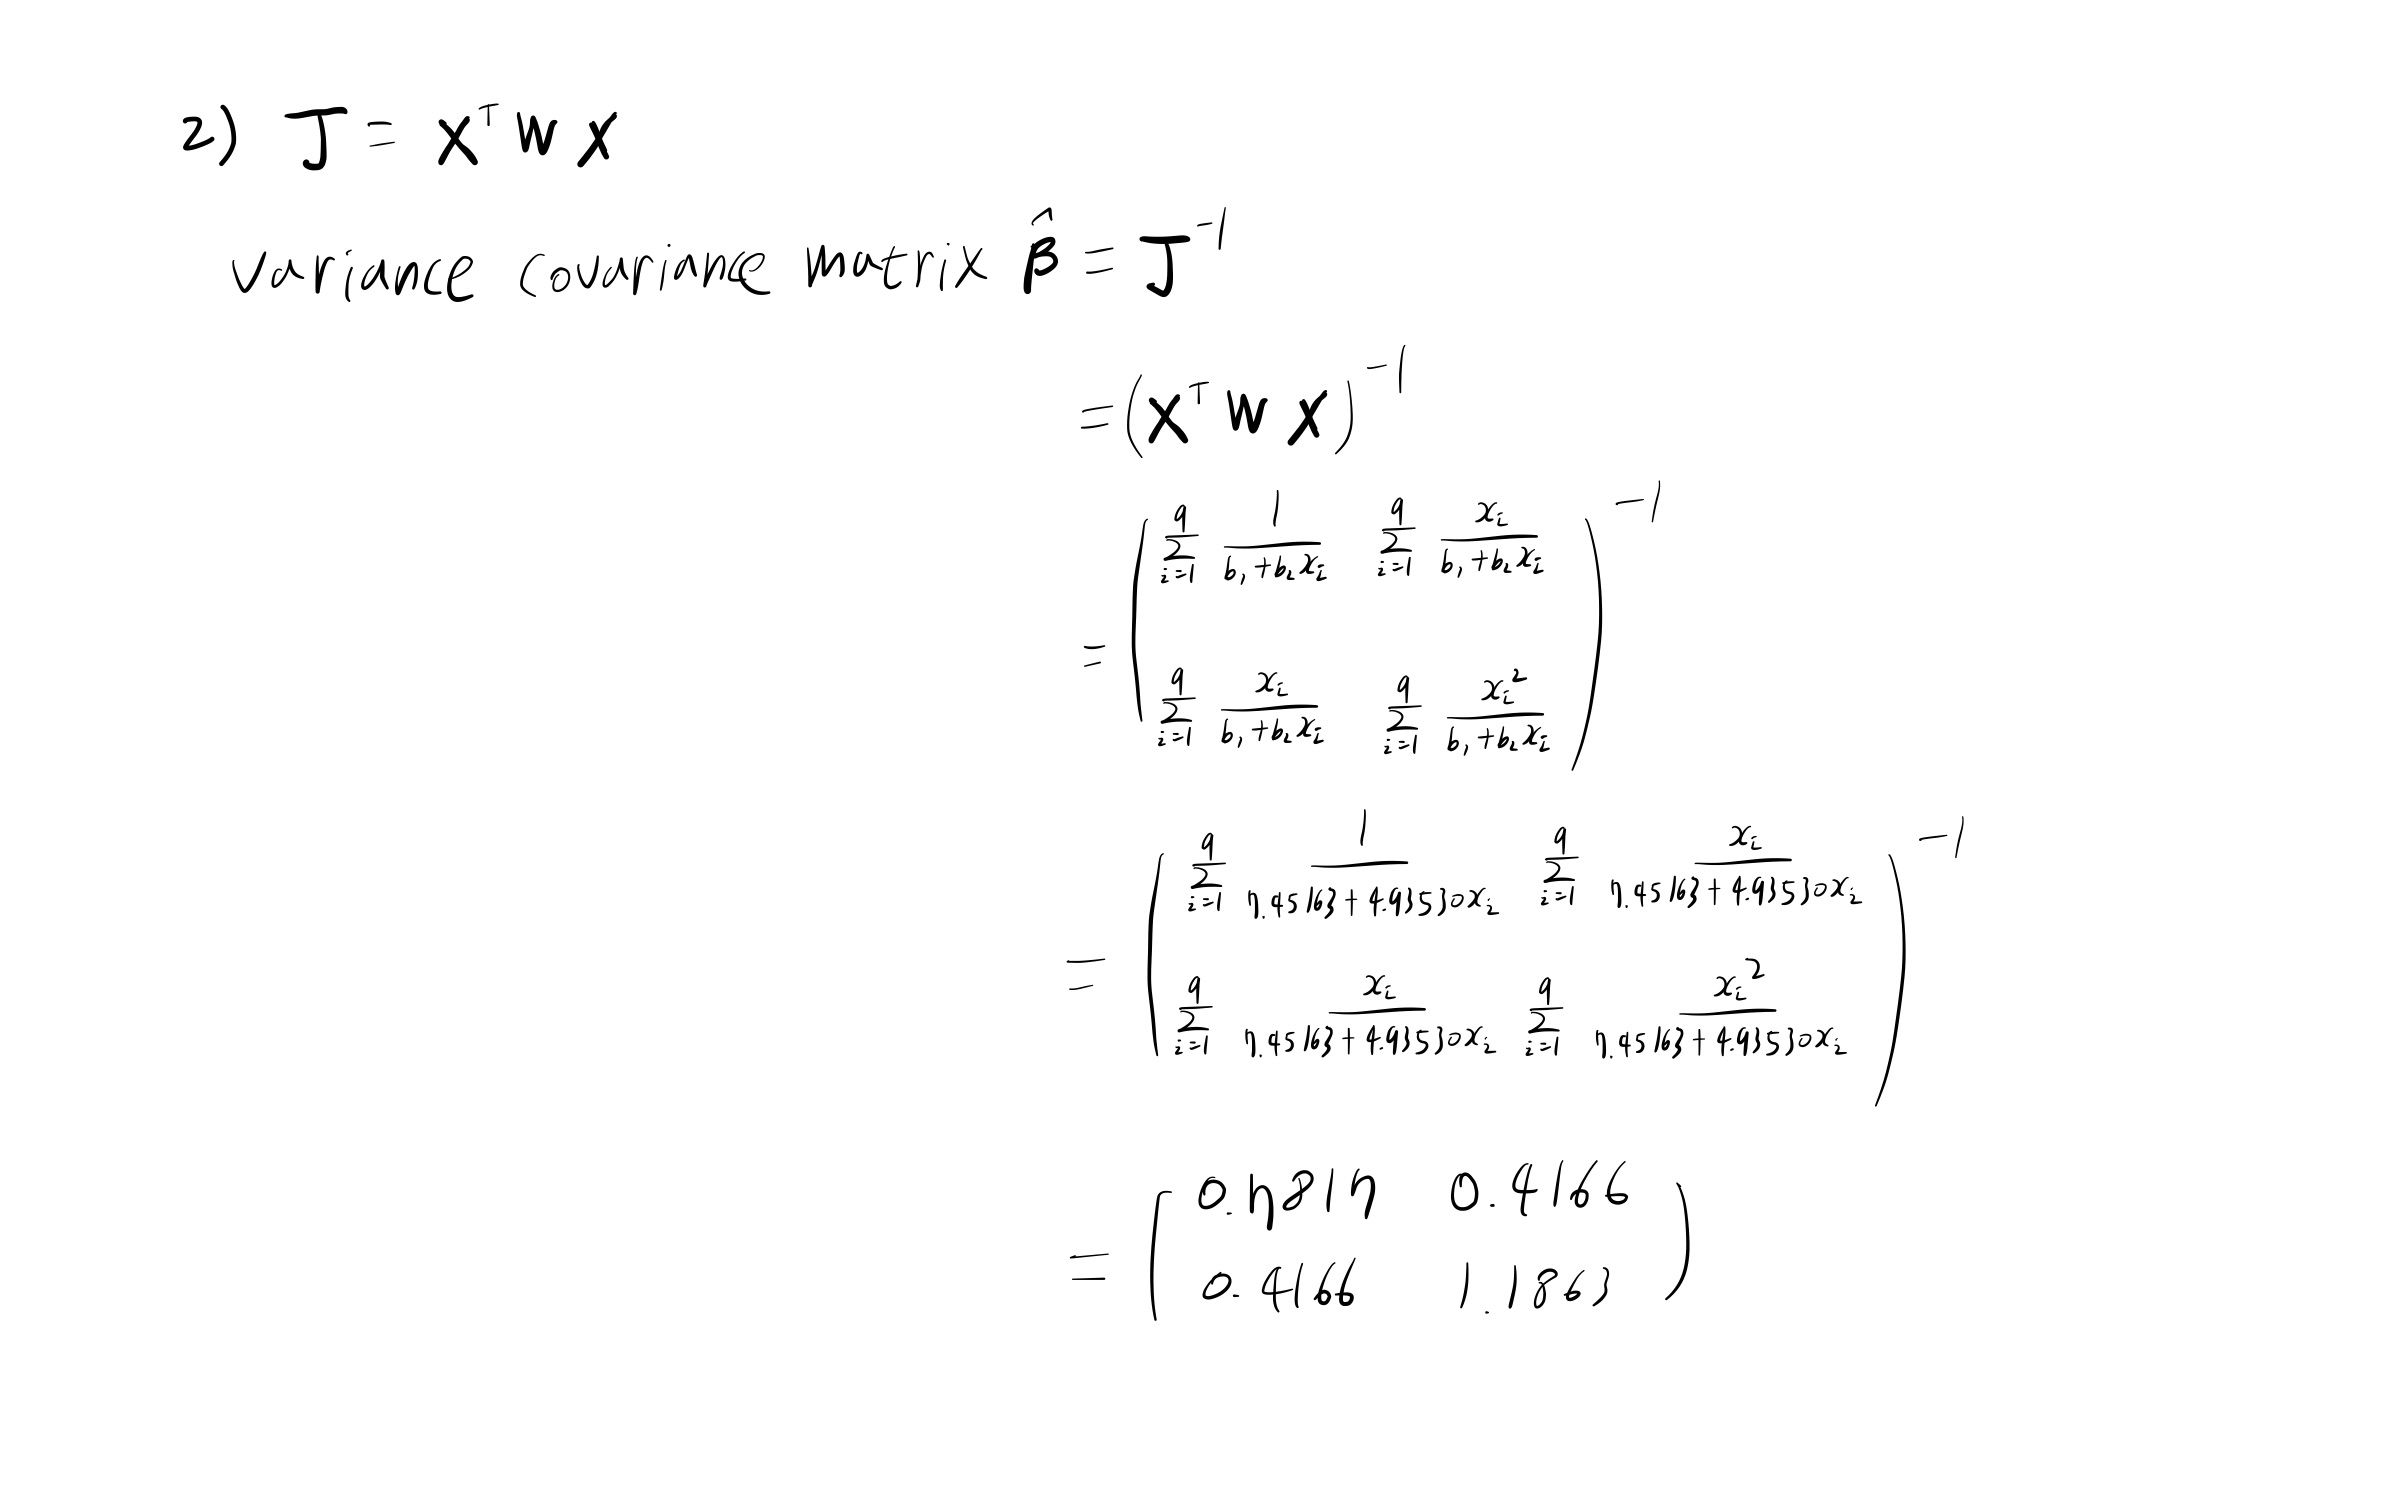 2) J = X^T W X
variance covariance matrix β̂ = J^{-1}
= (X^T W X)^{-1}
= ( Σ_{i=1}^{9} 1/(b_1+b_2x_i)   Σ_{i=1}^{9} x_i/(b_1+b_2x_i)
Σ_{i=1}^{9} x_i/(b_1+b_2x_i)   Σ_{i=1}^{9} x_i^2/(b_1+b_2x_i) )^{-1}
= ( Σ_{i=1}^{9} 1/(7.45163+4.93530x_i)   Σ_{i=1}^{9} x_i/(7.45163+4.93530x_i)
Σ_{i=1}^{9} x_i/(7.45163+4.93530x_i)   Σ_{i=1}^{9} x_i^2/(7.45163+4.93530x_i) )^{-1}
= ( 0.7817   0.4166
0.4166   1.1863 )